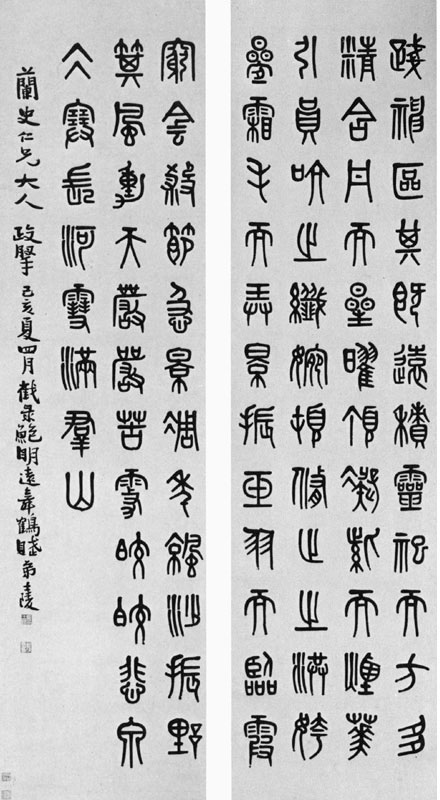 踐神區其既遠積靈祀而方多
清含丹而星曜頂凝紫而煙華
引員吭之纖婉頓修止之洪姱
疊霜毛而弄景振玉羽而臨霞
窮佥殺節急景凋年飆沙振野
箕風動天嚴嚴苦霧皎皎悲泉
仌塞長河雪滿羣山
蘭史仁兄大人 政擘 己亥夏四月截录鮑明遠舞鶴賦弟陵